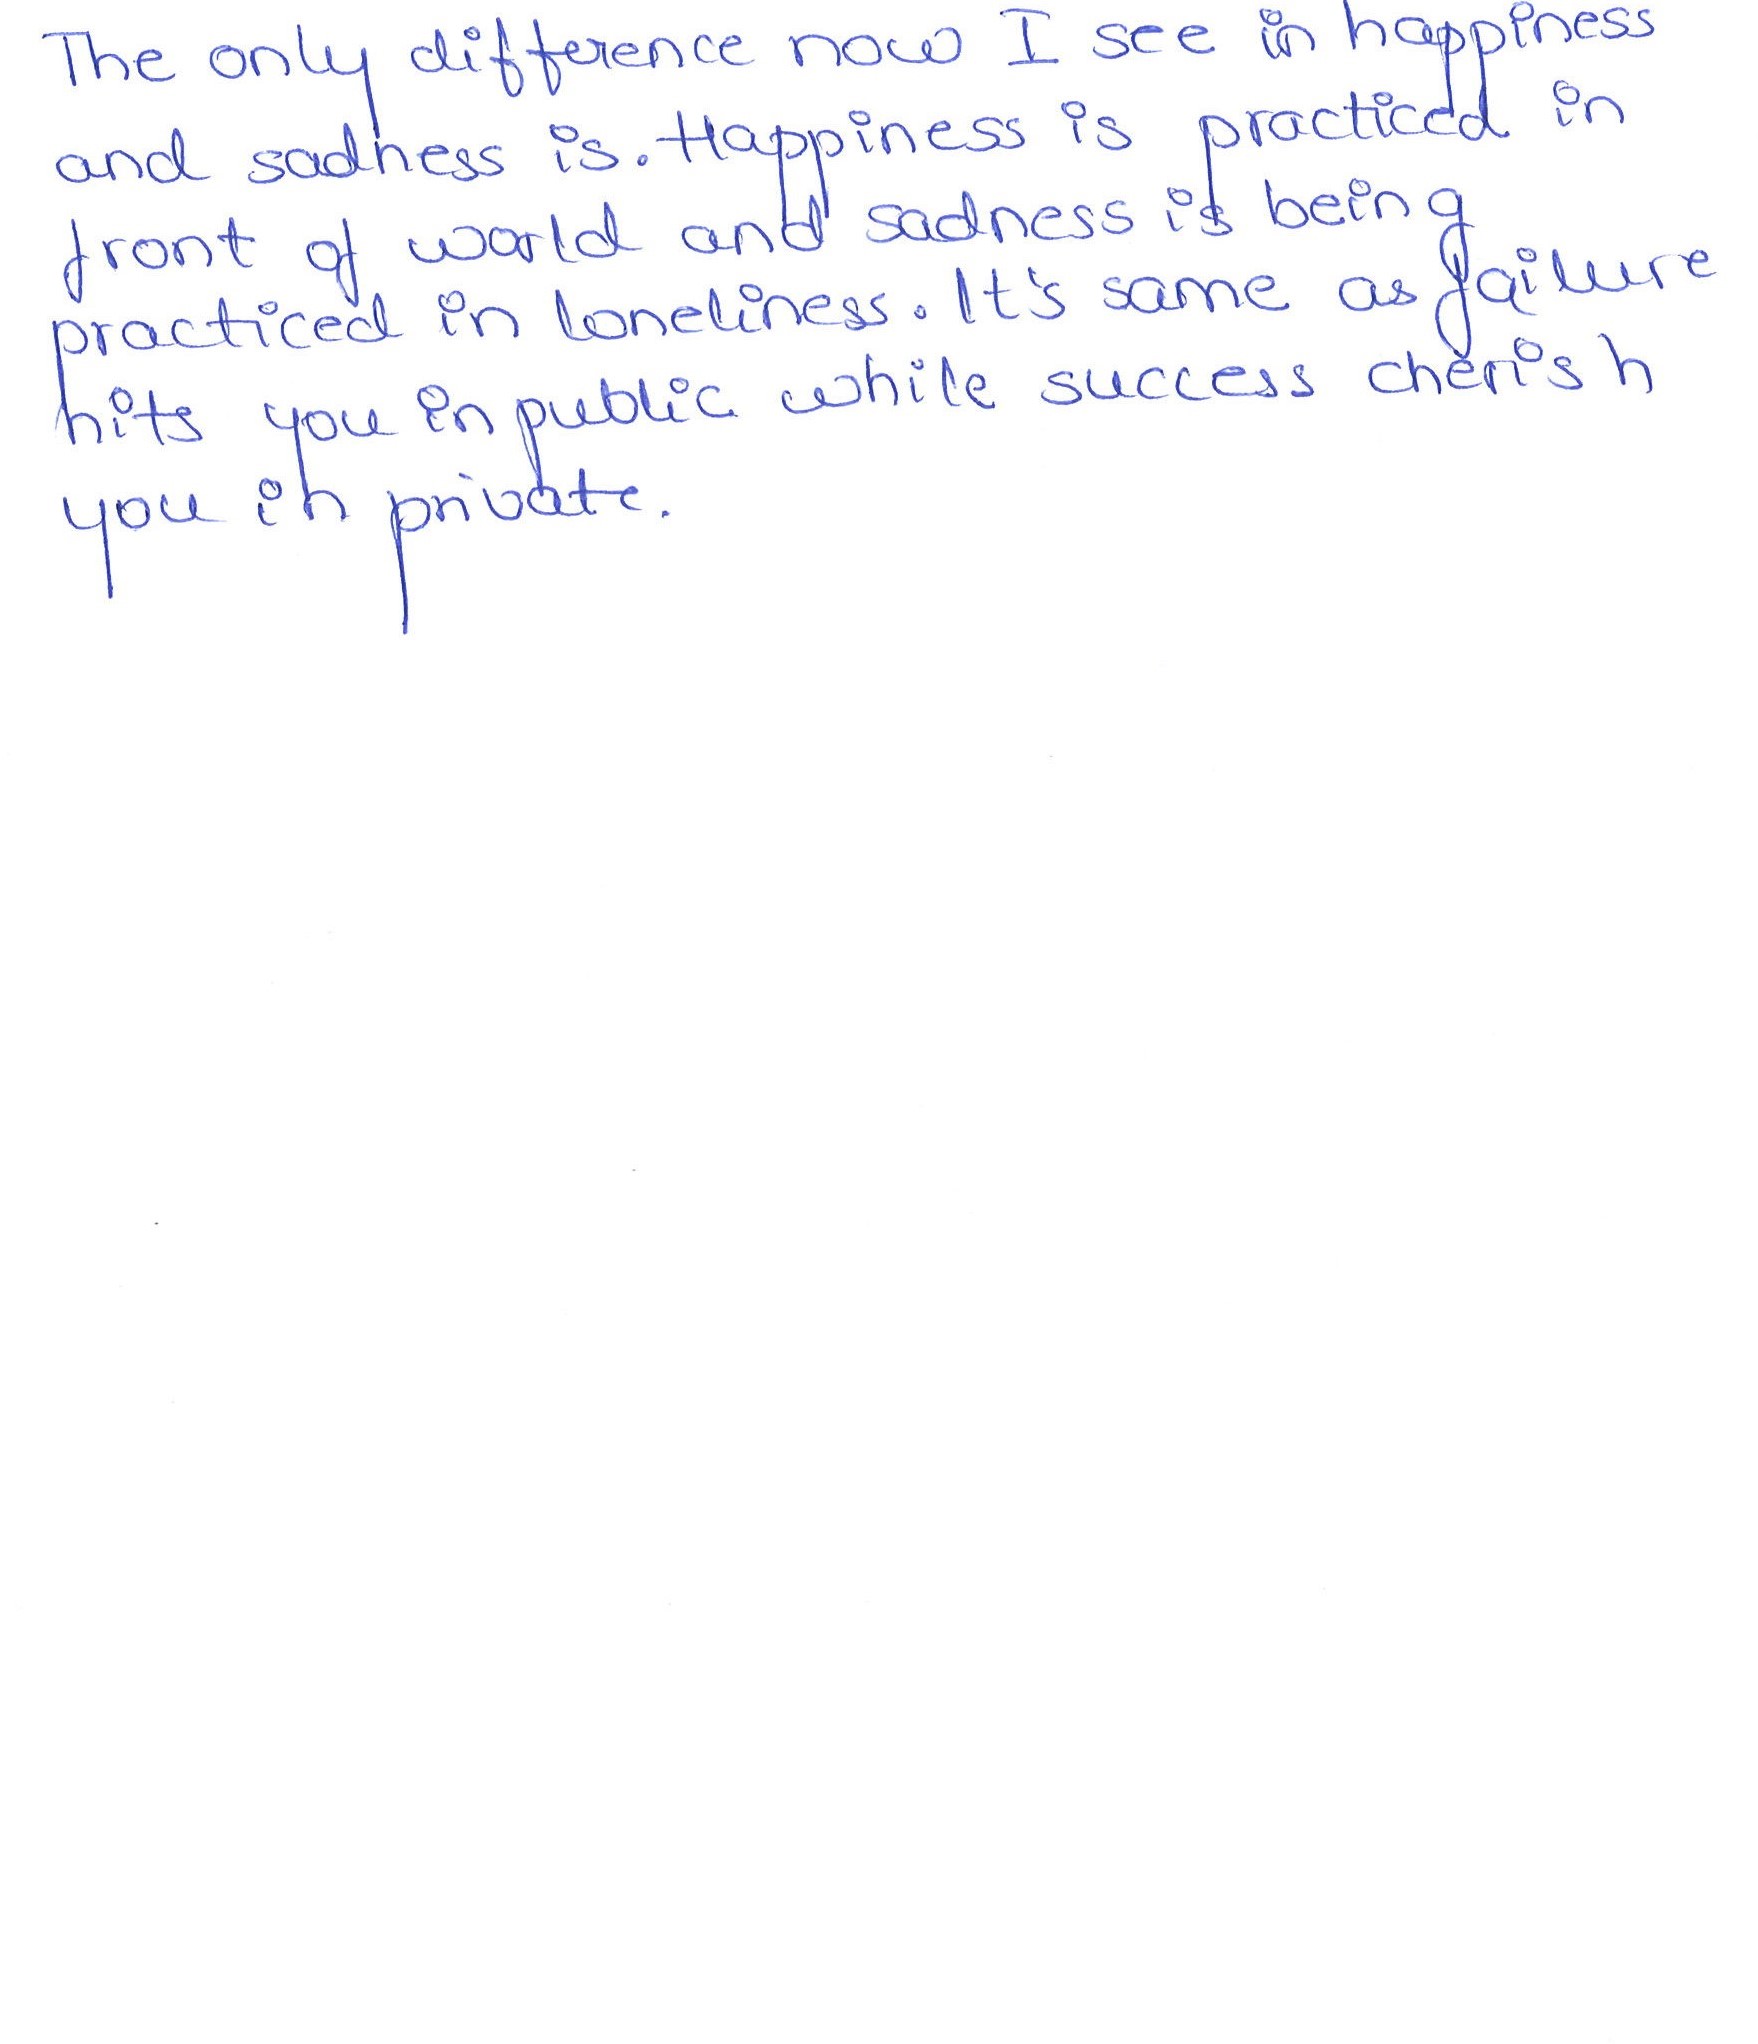 The only difference now I see in happiness
and sadness is. Happiness is practiced in
front of world and sadness is being
practiced in loneliness. It's same as failure
hits you in public while success cherish
you in private.